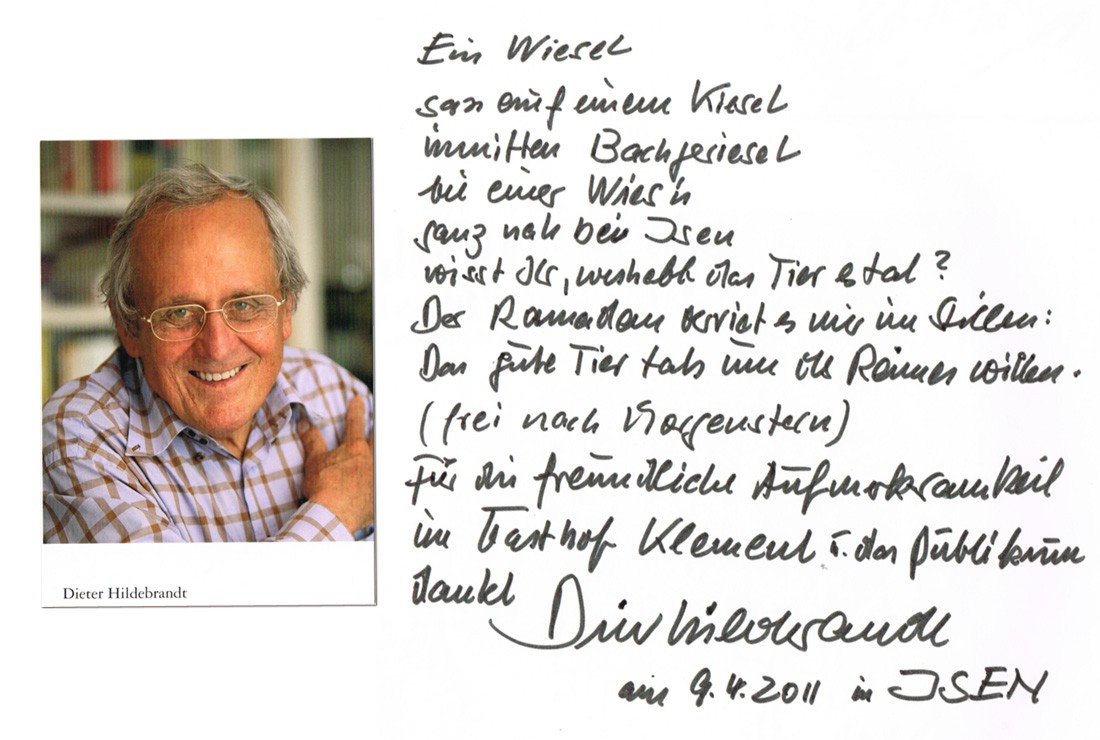 Ein Wiesel
sass auf einem Kiesel
inmitten Bachgeriesel
bei einer Wies'n
ganz nah bei Isen
wisst Ihr, weshalb das Tier es tat?
Der Ramadan verriet es mir im Stillen:
Das gute Tier tats um des Reimes willen.
(frei nach Morgenstern)
Für die freundliche Aufmerksamkeit
im Gasthof Klement u. das Publikum
dankt
Dieter Hildebrandt
am 9.4.2011 in ISEN
Dieter Hildebrandt